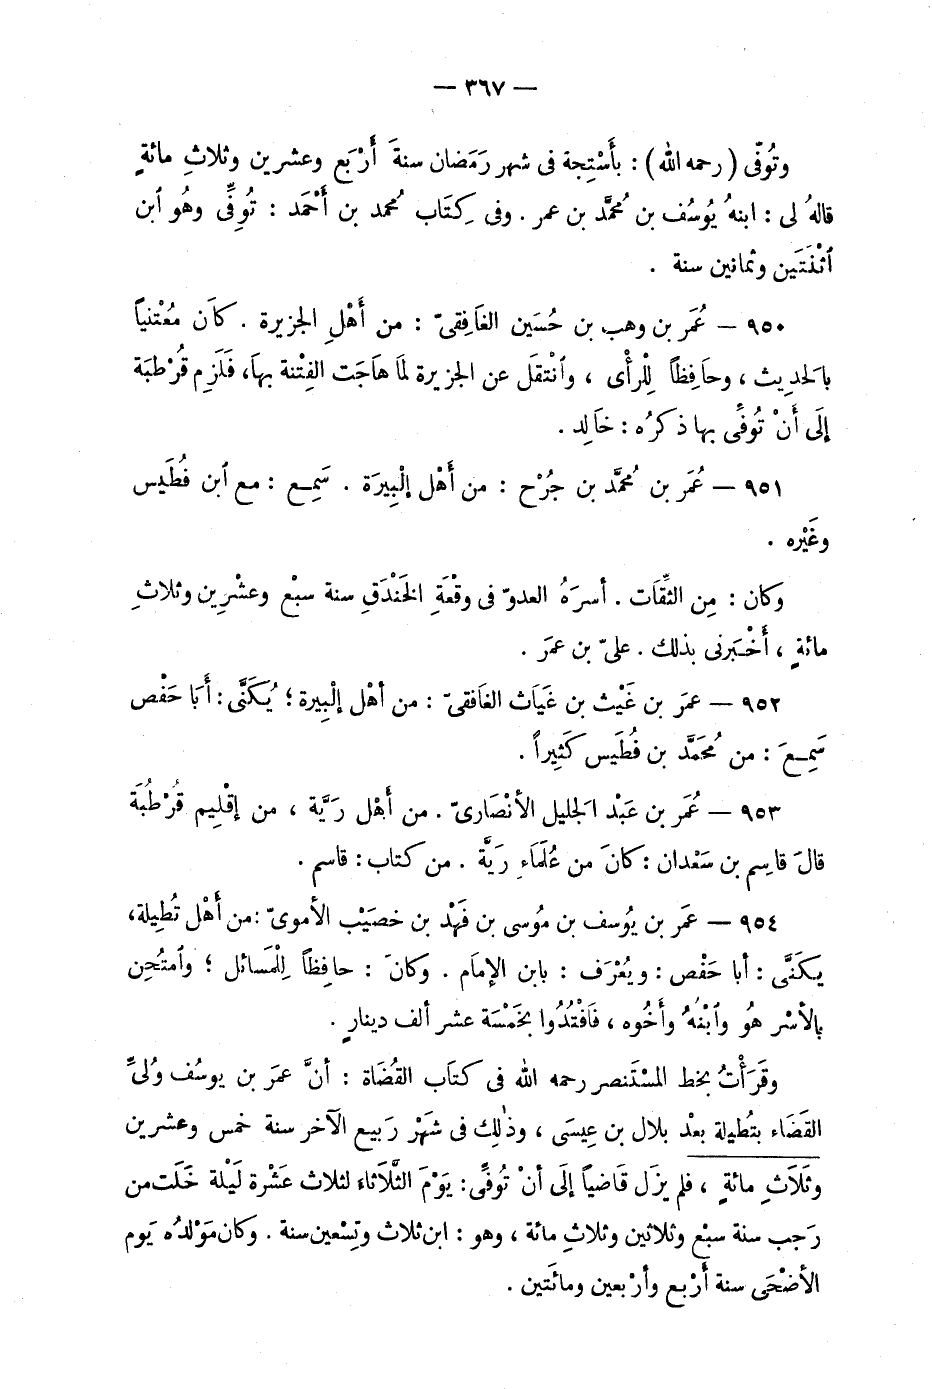 — ٣٦٧ —
وتُوفّى (رحمه الله) : بأَسْتِجة فى شهر رَمَضان سنةَ أَرْبَع وعشرين وثلاثِ مائةٍ
قالهُ لى : ابنهُ يُوسُف بن مُحمَّد بن عمر . وفى كِتَاب مُحمد بن أَحْمَد : تُوفِّى وهُو ٱبن
ٱثْنَتَين وثمانين سنة .
٩٥٠ — عُمَر بن وهب بن حُسَين الغَافِقىّ : من أَهْلِ الجزيرة . كَان مُعْتنياً
بالحديث ، وحَافِظاً لِلْرأْى ، وٱنْتقَل عن الجزيرة لمَا هاَجَت الفِتْنة بهاَ، فَلَزِم قُرْطبَة
إلَى أَنْ تُوفِّى بها ذكرُه : خَالِد .
٩٥١ — عُمَر بن مُحمَّد بن جُرْح : من أَهْل إلْبِيرَة . سَمِع : مع ٱبن فُطَيس
وغَيْره .
وكان : مِن الثِّقَات . أسرَهُ العدوّ فى وقْعَةِ الخَنْدَقِ سنة سبْع وعشْرِين وثلاثِ
مائةٍ ، أَخْبَرنى بذلك . علىّ بن عمَر .
٩٥٢ — عمَر بن غَيْث بن غَيَاث الغَافقىّ : من أهْل إلْبِيرة ؛ يُكَنَّى : أَبَا حَفْص
سَمِعَ : من مُحَمَّد بن فُطَيس كَثِيراً .
٩٥٣ — عُمَر بن عَبْد الجليل الأنْصَارىّ . من أَهْل رَيَّة ، من إقْلِيم قُرْطُبَة
قالَ قاسِم بن سَعْدان : كانَ من عُلَمَاءِ رَيَّة . من كتاب : قاسم .
٩٥٤ — عمَر بن يُوسف بن مُوسى بن فَهْد بن خصَيْب الأموىّ : من أَهْل تُطِيلة،
يكَنَّى : أبا حَفْص : ويُعْرَف : بابن الإمَام . وكانَ : حافِظاً لِلْمَسائل ؛ وٱمتُحِن
بالأسْر هُو وٱبْنُهُ وأَخُوه ، فَافْتُدُوا بخَمْسَة عشر ألف دينارٍ .
وقَرَأْتُ بخط المسْتَنصر رحمه الله فى كتاَب القُضَاة : أنَّ عمَر بن يوسُف وُلىِّ
القَضَاء بتُطيلة بعْد بلال بن عِيسَى ، وذٰلِك فى شَهْر رَبِيع الآخر سنة خمس وعشرين
وثَلاَثِ مائةٍ ، فلم يزَل قَاضياً إلَى أنْ تُوفِّى : يَوْمَ الثَّلاَثاء لثلاث عَشْرة لَيْلة خَلَت من
رَجب سنة سبْع وثلاثين وثلاثِ مائة ، وهو : ابن ثلاث وتِسْعين سنة . وكان مَوْلدُه يَوم
الأضْحَى سنة أَرْبع وأرْبعين ومائَتين .